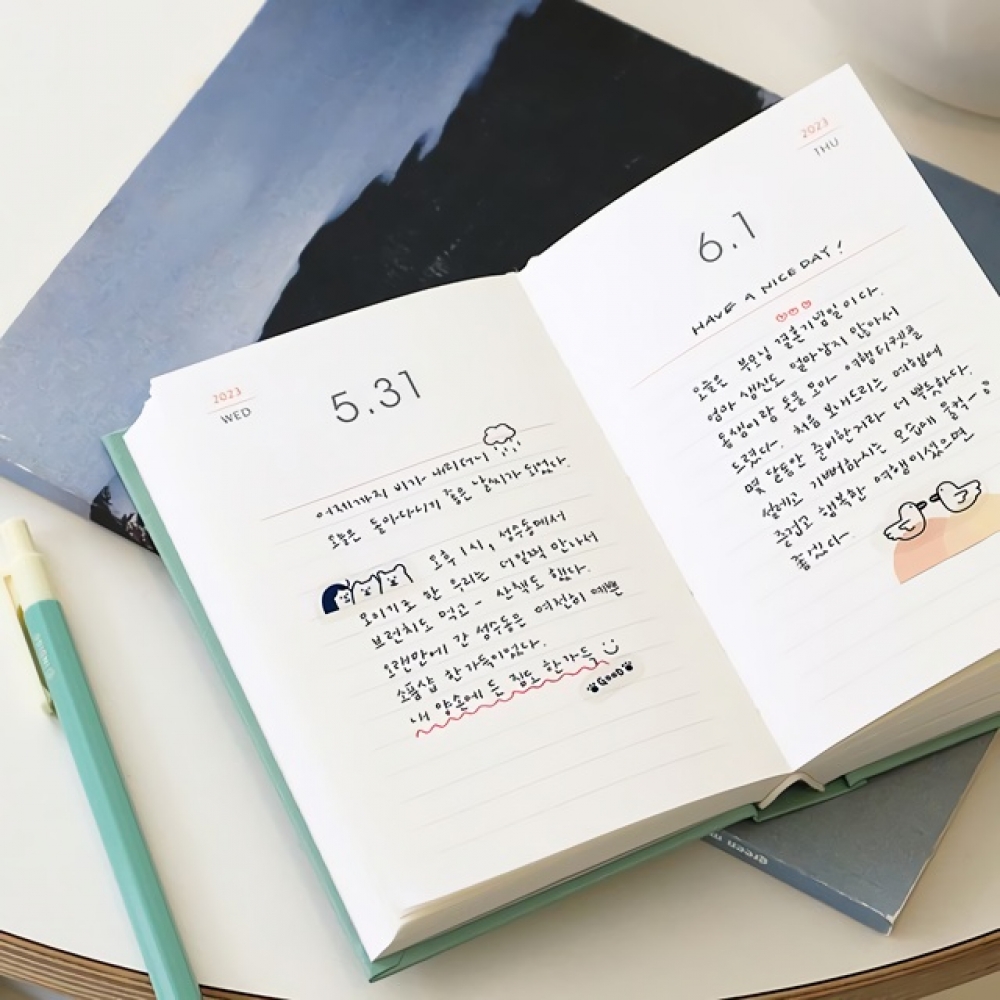 2023
WED
5.31
어제까지 비가 내리더니
오늘은 돌아다니기 좋은 날씨가 되었다.
오후 1시, 성수동에서
모이기로 한 우리는 더일찍 만나서
브런치도 먹고~ 산책도 했다.
오랜만에 간 성수동은 여전히 예쁜
소품샵 한가득이었다.
내 양손에 든 짐도 한가득
GOOD
2023
THU
6.1
HAVE A NICE DAY!
오늘은 부모님 결혼기념일이다.
엄마 생신도 얼마남지 않아서
동생이랑 돈을 모아 여행티켓을
드렸다~ 처음 보내드리는 여행에
몇 달동안 준비한지라 더 뿌듯하다.
설레고 기뻐하시는 모습에 울컥~
즐겁고 행복한 여행이셨으면
좋겠다~